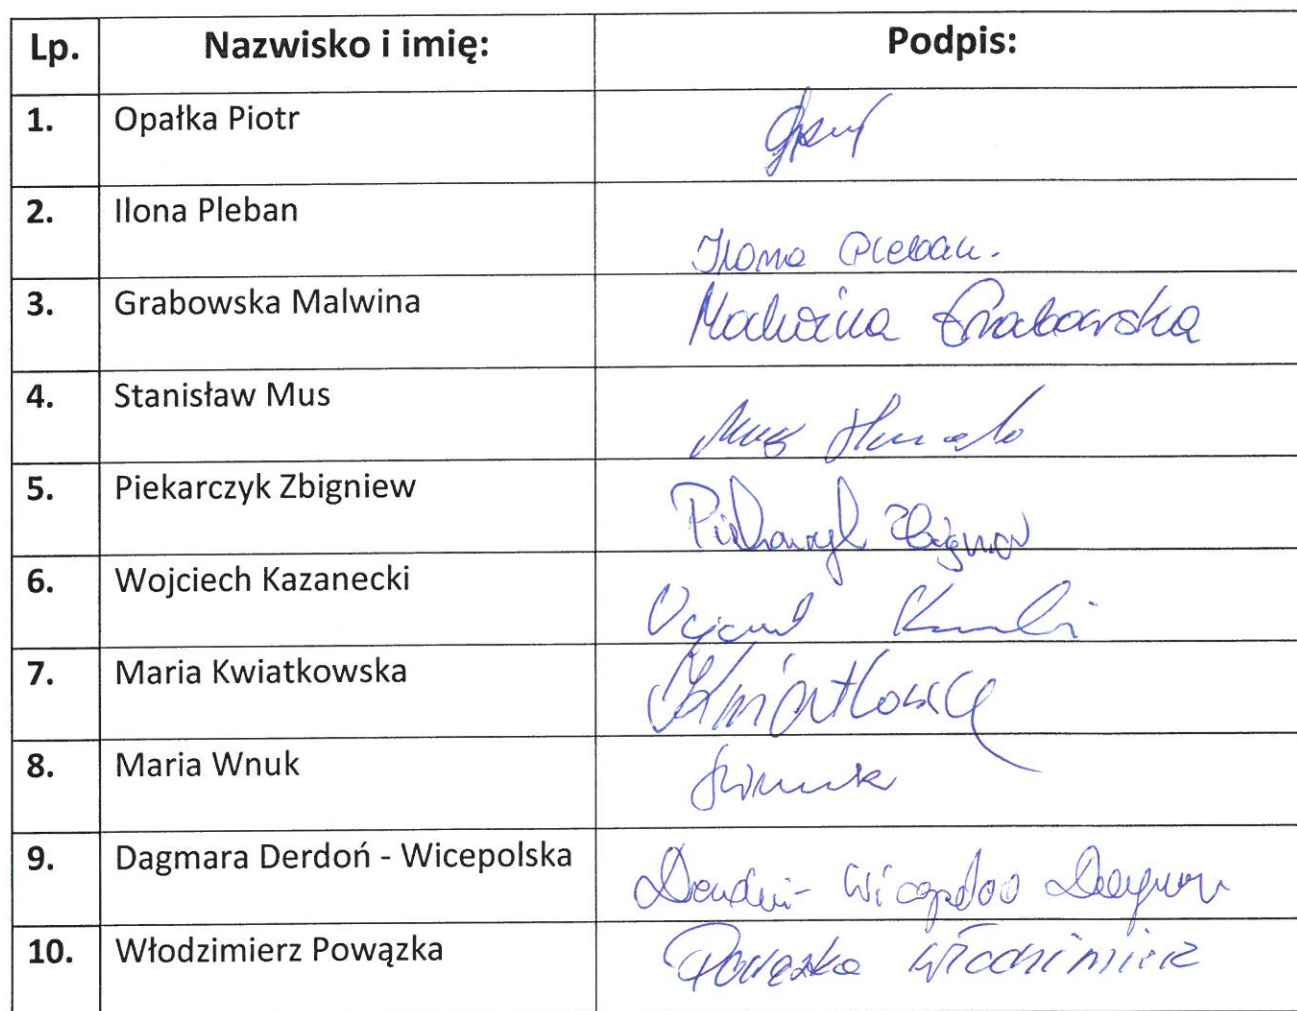 Lp. Nazwisko i imię: Podpis:
1. Opałka Piotr
2. Ilona Pleban Ilona Pleban.
3. Grabowska Malwina Malwina Grabowska
4. Stanisław Mus Mus
5. Piekarczyk Zbigniew Piekarczyk Zbigniew
6. Wojciech Kazanecki Wojciech
7. Maria Kwiatkowska Kwiatkowska
8. Maria Wnuk
9. Dagmara Derdoń - Wicepolska Derdoń - Dagmara
10. Włodzimierz Powązka Powązka Włodzimierz